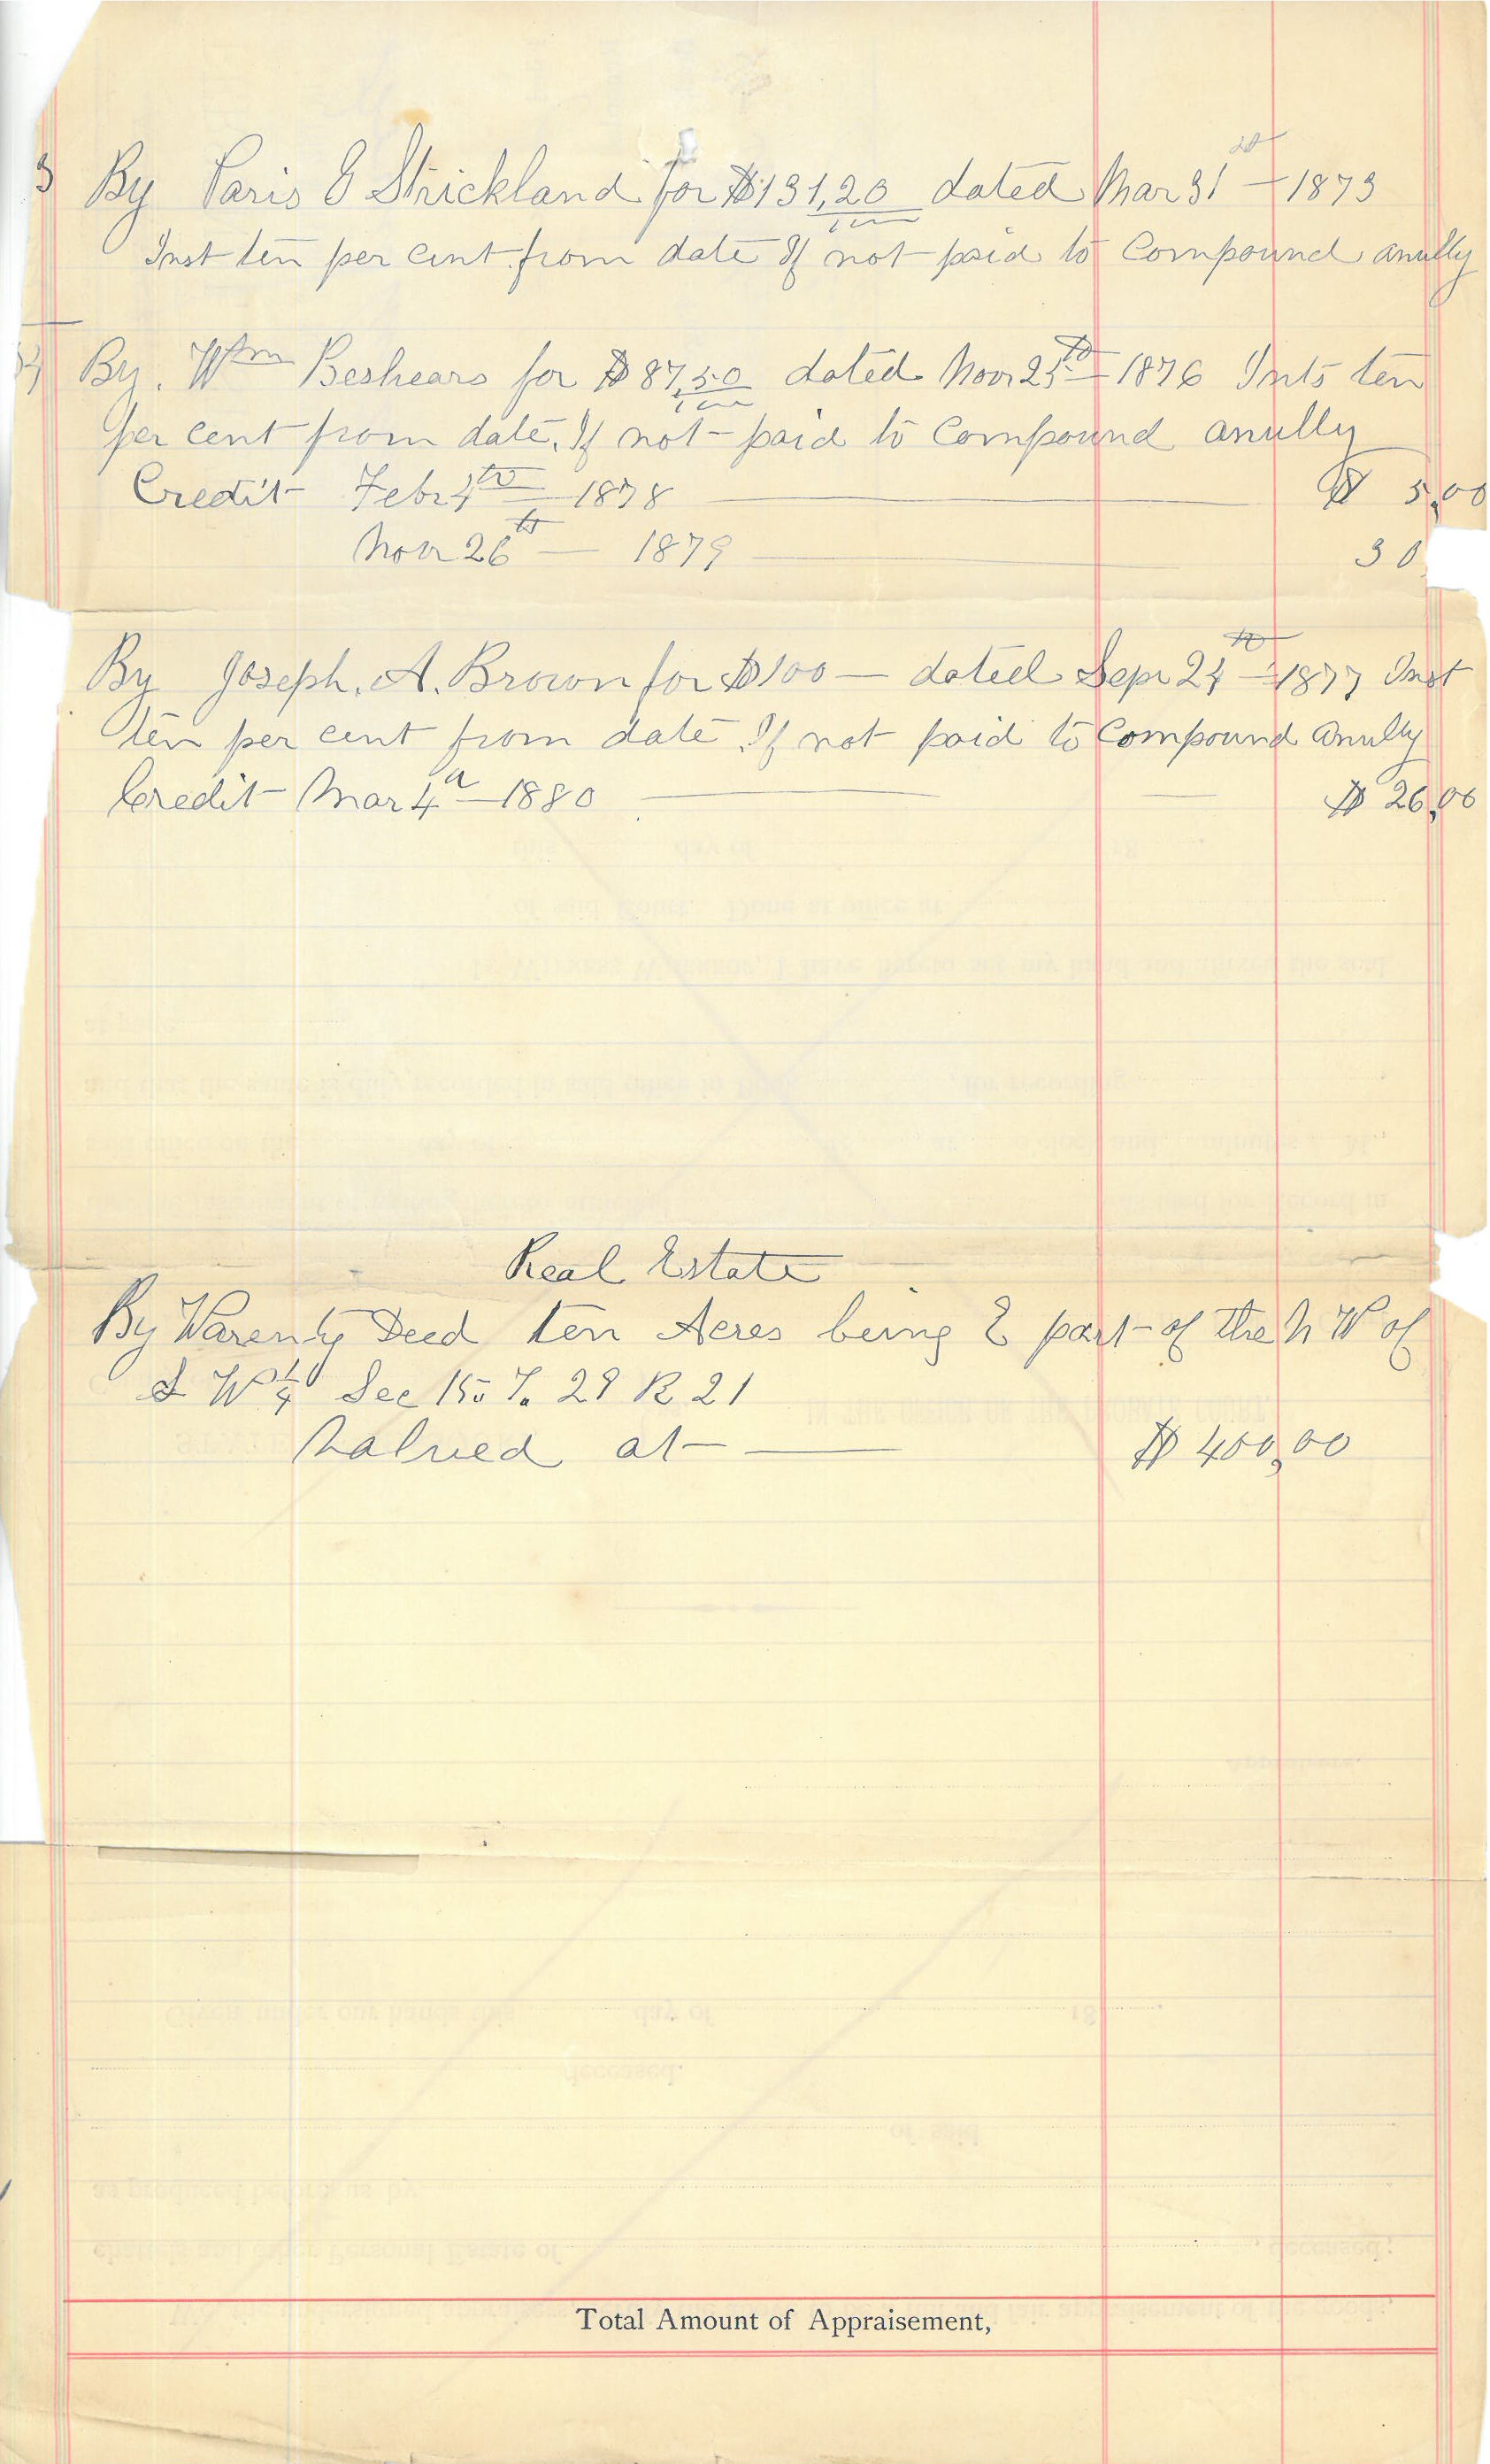 3 By Paris E Strickland for $131,20 dated Mar 31st — 1873
Inst ten per cent from date If not paid to Compound anully
By. Wm Beshears for $87,50 dated Novr 25th — 1876 Ints ten
per cent from date, If not paid to Compound anully
Credit Febr 4th — 1878 — $ 5,00
Novr 26th — 1879 — 30
By Joseph. A. Brown for $100 — dated Sepr 24th — 1877 Inst
ten per cent from date If not paid to Compound anully
Credit Mar 4th — 1880 — $ 26,00
Real Estate
By Warenty Deed ten Acres being E part of the N W of
S W 1/4 Sec 15 T. 29 R 21
valued at — $ 400,00
Total Amount of Appraisement,